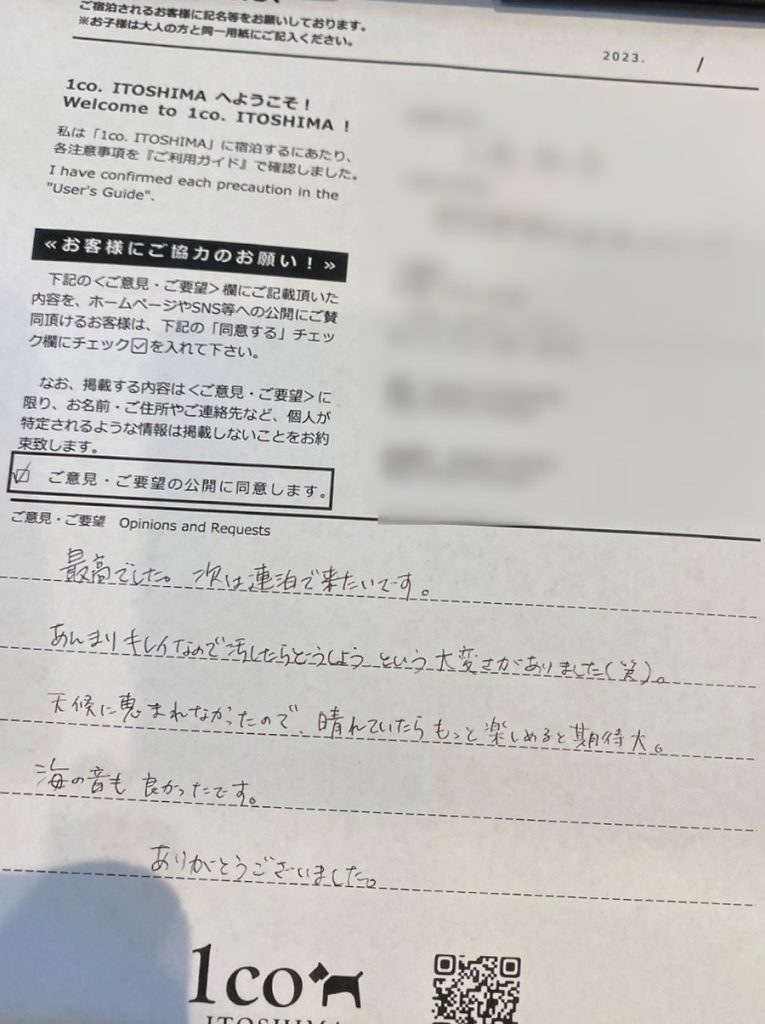 ご宿泊されるお客様に記名等をお願いしております。
※お子様は大人の方と同一用紙にご記入ください。
2023. /
1co. ITOSHIMA へようこそ！
Welcome to 1co. ITOSHIMA !
私は「1co. ITOSHIMA」に宿泊するにあたり、
各注意事項を『ご利用ガイド』で確認しました。
I have confirmed each precaution in the
"User's Guide".
≪お客様にご協力のお願い！≫
下記の<ご意見・ご要望>欄にご記載頂いた
内容を、ホームページやSNS等への公開にご賛
同頂けるお客様は、下記の「同意する」チェッ
ク欄にチェック☑を入れて下さい。
なお、掲載する内容は<ご意見・ご要望>に
限り、お名前・ご住所やご連絡先など、個人が
特定されるような情報は掲載しないことをお約
束致します。
☑ ご意見・ご要望の公開に同意します。
ご意見・ご要望 Opinions and Requests
最高でした。次は連泊で来たいです。
あんまりキレイなので汚したらどうしようという大変さがありました(笑)。
天候に恵まれなかったので、晴れていたらもっと楽しめると期待大。
海の音も良かったです。
ありがとうございました。
1co
ITOSHIMA